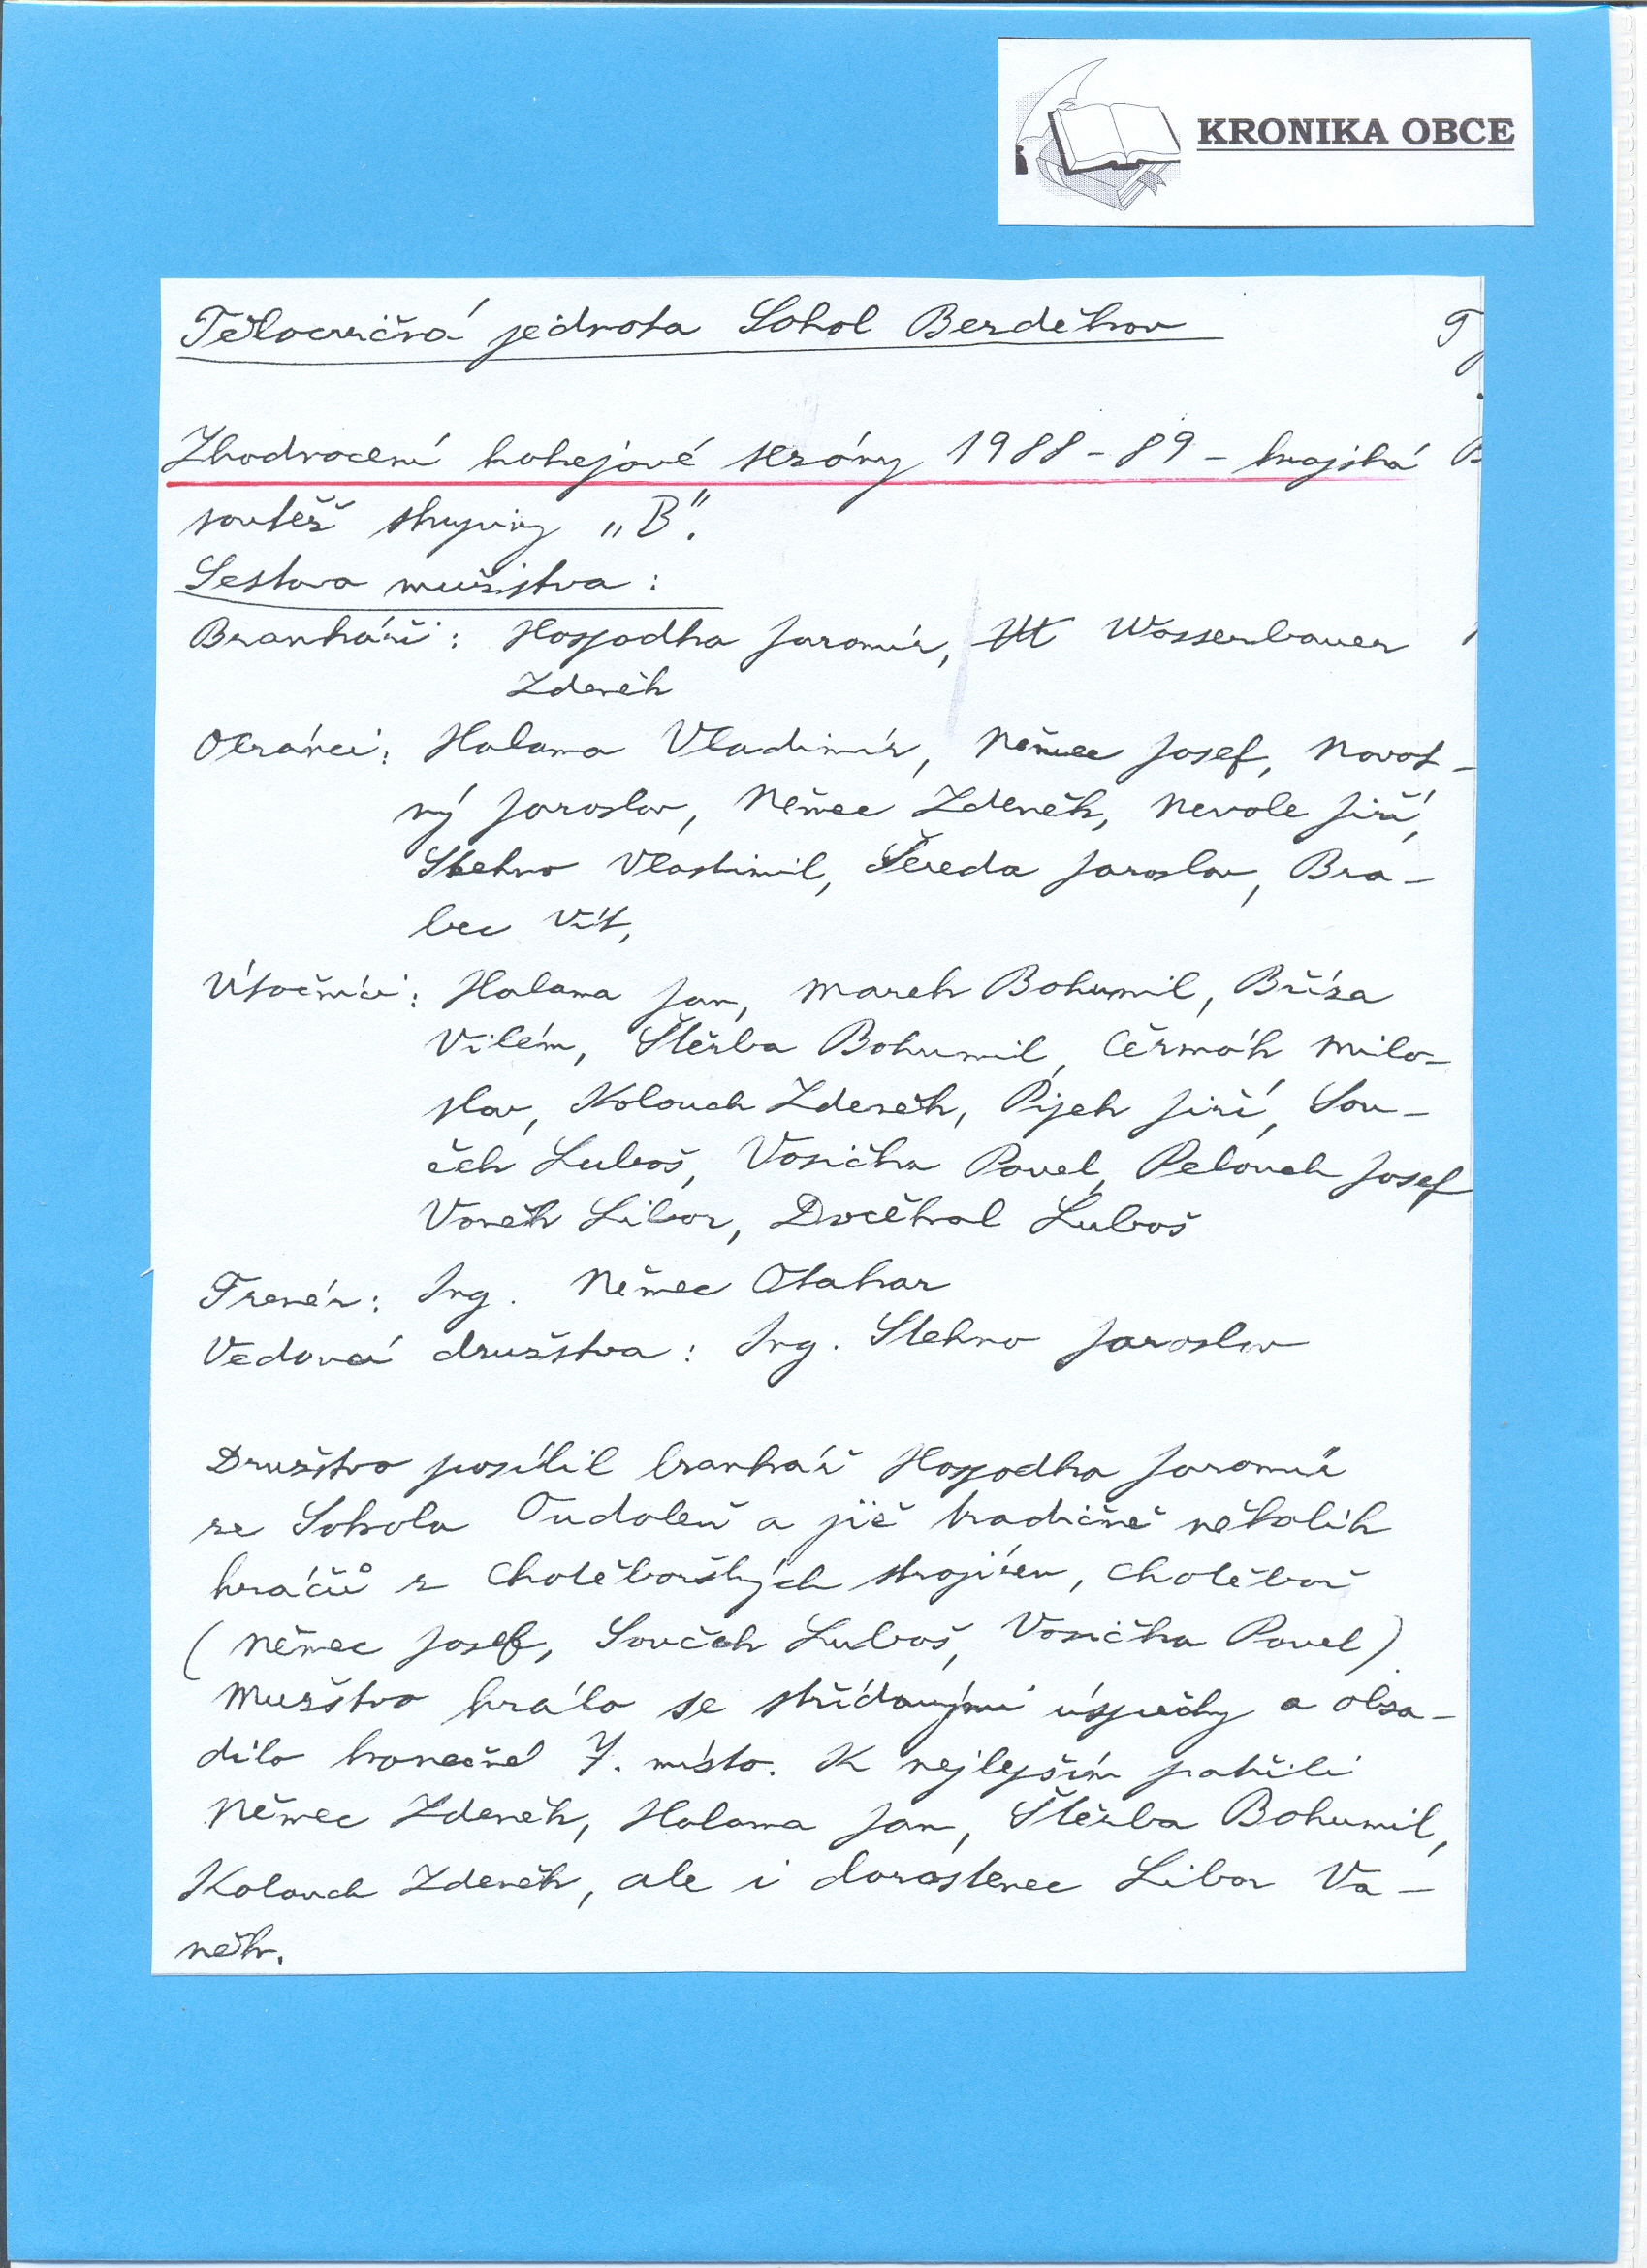 KRONIKA OBCE
Tělocvičná jednota Sokol Bezděkov
Zhodnocení hokejové sezóny 1988-89 - krajská
soutěž skupiny „B".
Sestava mužstva:
Brankáři: Hospodka Jaromír, Wasserbauer
Zdeněk
Obránci: Halama Vladimír, Němec Josef, Novot-
ný Jaroslav, Němec Zdeněk, Nevole Jiří,
Stehno Vlastimil, Šereda Jaroslav, Bra-
bec Vít,
Útočníci: Halama Jan, Marek Bohumil, Bříza
Vilém, Štěrba Bohumil, Čermák Milo-
slav, Kolouch Zdeněk, Pijek Jiří, Sou-
ček Luboš, Vosička Pavel, Pelouch Josef
Vaněk Libor, Dočekal Luboš
Trenér: Ing. Němec Otakar
Vedoucí družstva: Ing. Stehno Jaroslav
Družstvo posílil brankář Hospodka Jaromír
ze Sokola Oudoleň a již tradičně několik
hráčů z Chotěbořských strojíren, Chotěboř
(Němec Josef, Souček Luboš, Vosička Pavel).
Mužstvo hrálo se střídavými úspěchy a obsa-
dilo konečné 7. místo. K nejlepším patřili
Němec Zdeněk, Halama Jan, Štěrba Bohumil,
Kolouch Zdeněk, ale i dorostenec Libor Va-
něk.